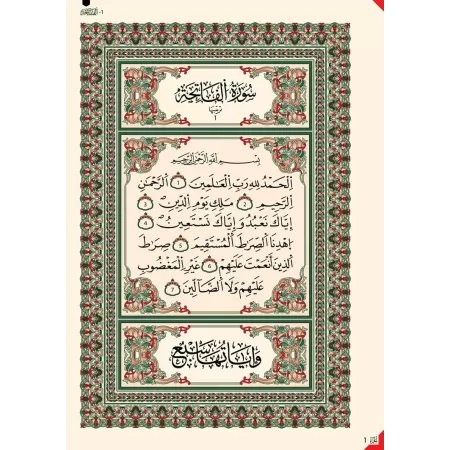 سُورَةُ الْفَاتِحَةِ
ترتيبها
١
بِسْمِ اللهِ الرَّحْمٰنِ الرَّحِيمِ
اِلْحَمْدُ لِلهِ رَبِّ الْعَٰلَمِينَ ١ اَلرَّحْمَٰنِ
اِلرَّحِيمِ ٢ مَلِكِ يَوْمِ الدِّينِ ٣
إِيَّاكَ نَعْبُدُ وَإِيَّاكَ نَسْتَعِينُ ٤
اِهْدِنَا الصِّرَٰطَ الْمُسْتَقِيمَ ٥ صِرَٰطَ
الذِينَ أَنْعَمْتَ عَلَيْهِمْ ٦ غَيْرِ الْمَغْضُوبِ
عَلَيْهِمْ وَلَا الضَّآلِّينَ ٧
وَآيَاتُهَا سَبْعٌ
1